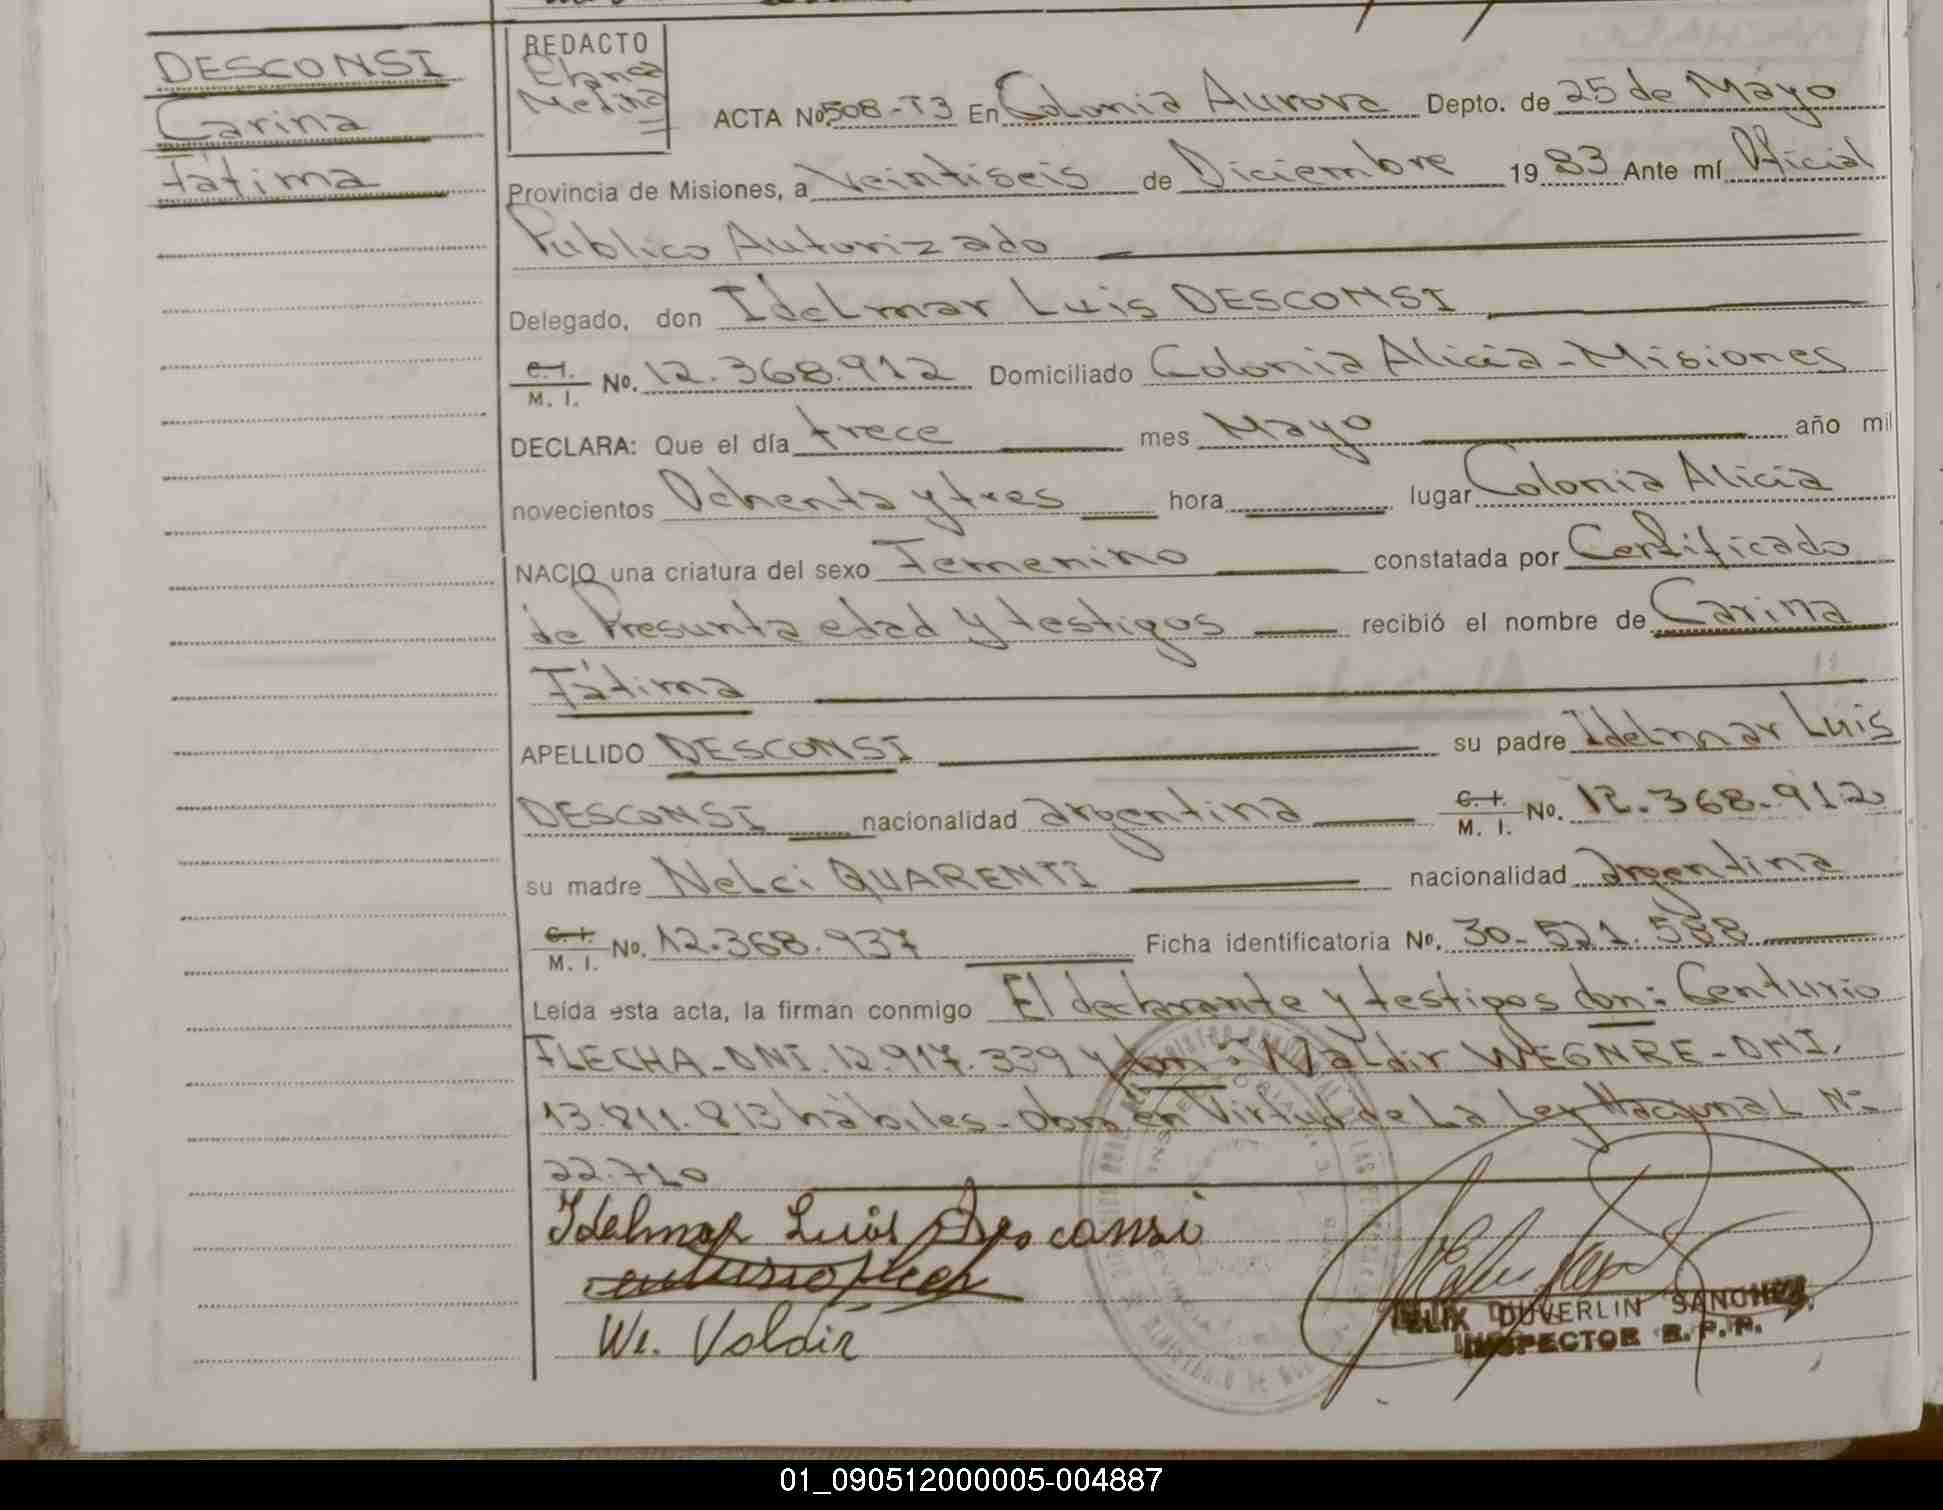 DESCONSI
Carina
Fátima
REDACTO
Medina
ACTA No. 508-T3 En Colonia Aurora Depto. de 25 de Mayo
Provincia de Misiones, a Veintiseis de Diciembre 19 83 Ante mí Oficial
Publico Autorizado
Delegado, don Idelmar Luis DESCONSI
C. I. M. I. No. 12.368.912 Domiciliado Colonia Alicia - Misiones
DECLARA: Que el día trece mes Mayo año mil
novecientos Ochenta y tres hora lugar Colonia Alicia
NACIO una criatura del sexo Femenino constatada por Certificado
de Presunta edad y testigos recibió el nombre de Carina
Fátima
APELLIDO DESCONSI su padre Idelmar Luis
DESCONSI nacionalidad argentina C. I. M. I. No. 12.368.912
su madre Nelci QUARENTI nacionalidad argentina
C. I. M. I. No. 12.368.937 Ficha identificatoria No. 30-521.588
Leída esta acta, la firman conmigo El declarante y testigos don: Centurio
FLECHA - DNI. 12.917.339 y don: Waldir WEGNRE - DNI.
13.811.813 hábiles - Obra en Virtud de La Ley Nacional Nº
22.710
Idelmar Luis Desconsi
We. Valdir
FELIX DUVERLIN SANCHEZ
INSPECTOR R. P. P.
01_090512000005-004887